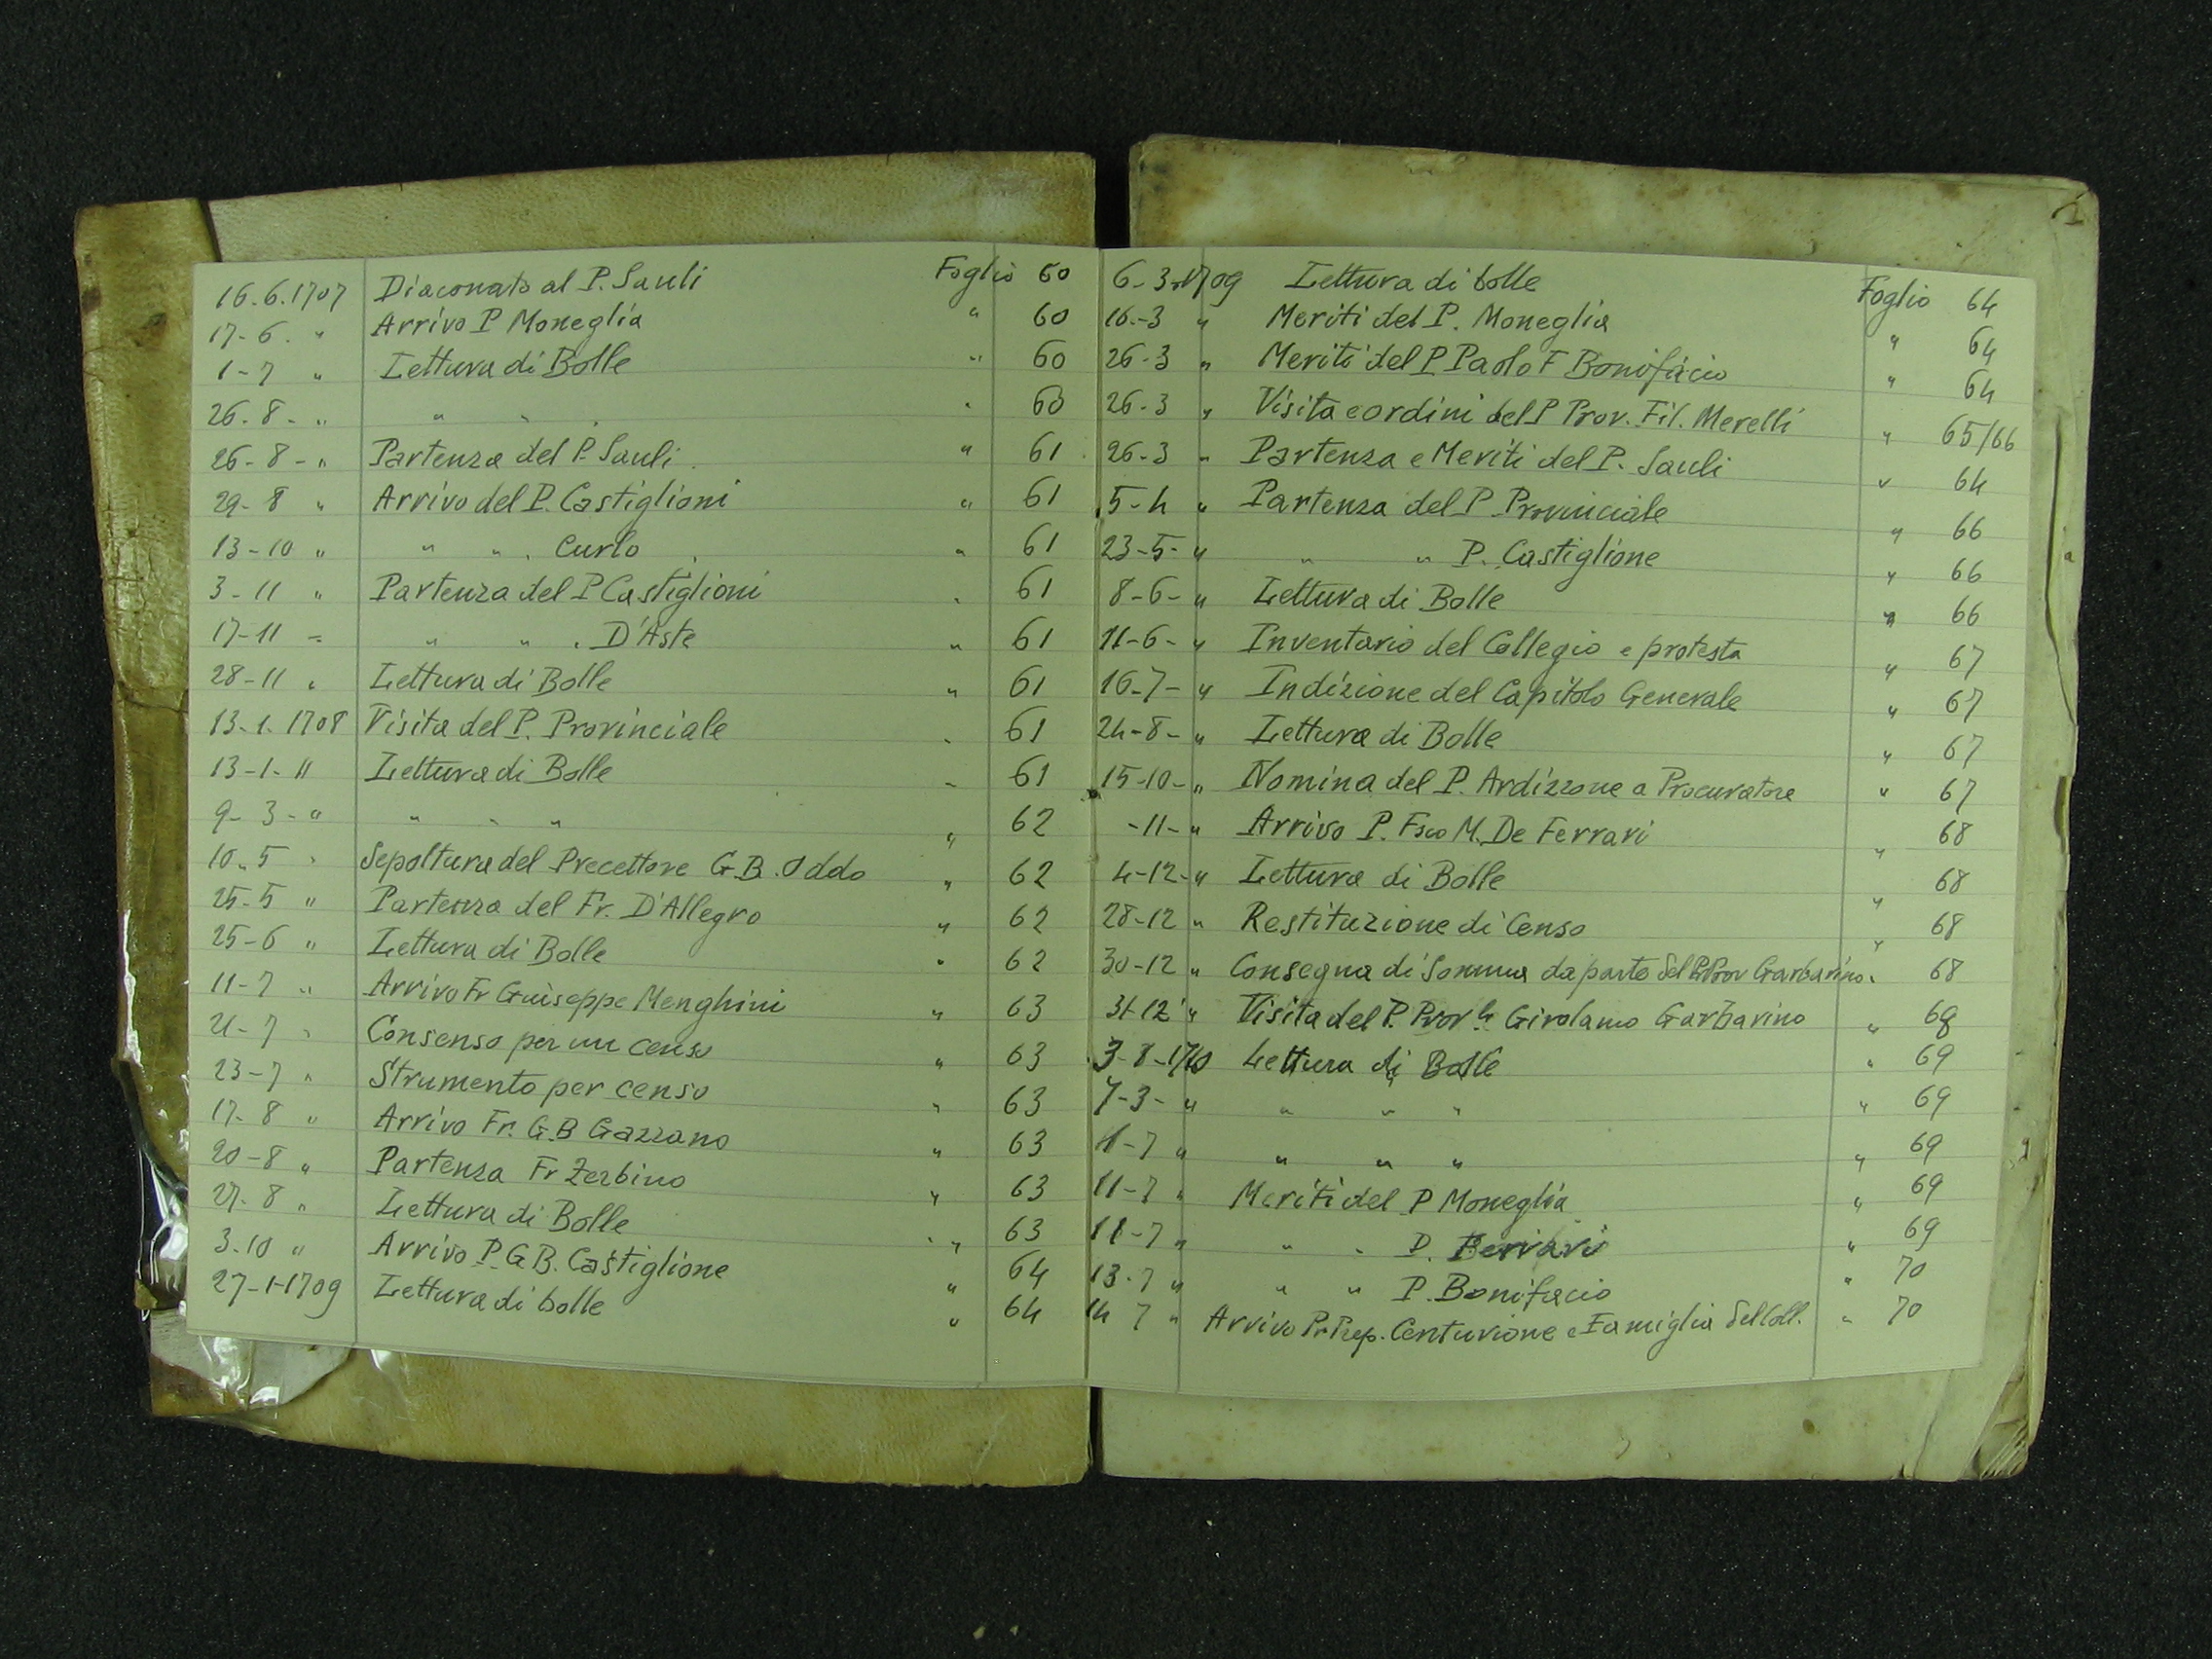 16.6.1707 Diaconato al P. Sauli Foglio 60
17-6. " Arrivo P Moneglia " 60
1-7 " Lettura di Bolle " 60
26-8- " " " " " 60
26-8- " Partenza del P. Sauli " 61
29-8 " Arrivo del P. Castiglioni " 61
13-10 " " " " Curlo " 61
3-11 " Partenza del P Castiglioni " 61
17-11 " " " " D'Aste " 61
28-11 " Lettura di Bolle " 61
13-1.1708 Visita del P. Provinciale " 61
13-1-11 Lettura di Bolle " 61
9-3-" " " " " 62
10-5 " Sepoltura del Precettore G.B. Oddo " 62
25-5 " Partenza del Fr. D'Allegro " 62
25-6 " Lettura di Bolle " 62
11-7 " Arrivo Fr Guiseppe Menghini " 63
21-7 " Consenso per un censo " 63
23-7 " Strumento per censo " 63
17-8 " Arrivo Fr. G.B Gazzano " 63
20-8 " Partenza Fr Zerbino " 63
27-8 " Lettura di Bolle " 63
3-10 " Arrivo P. G B. Castiglione " 64
27-1-1709 Lettura di bolle " 64
6-3-1709 Lettura di bolle Foglio 64
16-3 " Meriti del P. Moneglia " 64
26-3 " Meriti del P Paolo F Bonifacio " 64
26-3 " Visita e ordini del P Prov. Fil. Merelli " 65/66
26-3 " Partenza e Meriti del P. Sauli " 64
5-4 " Partenza del P Provinciale " 66
23-5-" " " P. Castiglione " 66
8-6-" Lettura di Bolle " 66
11-6-" Inventario del Collegio e protesta " 67
16-7-" Indizione del Capitolo Generale " 67
24-8-" Lettura di Bolle " 67
15-10-" Nomina del P. Ardizzone a Procuratore " 67
-11-" Arrivo P. Fsco M. De Ferrari " 68
4-12-" Lettura di Bolle " 68
28-12 " Restituzione di Censo " 68
30-12 " Consegna di Somma da parte del P. Prov Garbarino " 68
31-12 " Visita del P. Prov.le Girolamo Garbarino " 68
3-8-1710 Lettura di Bolle " 69
7-3-" " " " " 69
1-7 " " " " " 69
11-7 " Meriti del P Moneglia " 69
11-7 " " " P. Ferrari " 69
13-7 " " " P. Bonifacio " 70
14 7 " Arrivo Pr Prep. Centurione e Famiglia del Coll. " 70